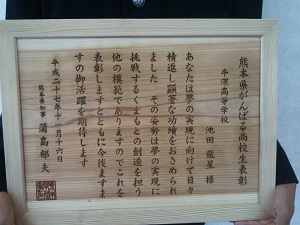 熊本県がんばる高校生表彰
牛深高等学校
池田 龍星 様
あなたは夢の実現に向けて日々
精進し顕著な功績をおさめられ
ました その姿勢は夢の実現に
挑戦するくまもとの創造を担う
他の模範でありますのでこれを
表彰しますとともに今後ますま
すの御活躍を期待します
平成二十七年十一月十六日
熊本県知事 蒲島郁夫